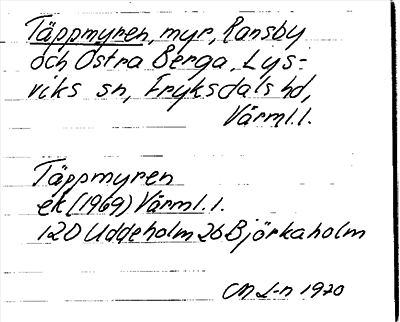 Täppmyren, myr, Ransby
och Östra Berga, Lys-
viks sn, Fryksdals hd,
Värml. l.
Täppmyren
ek (1969) Värml. l.
12D Uddeholm 2b Björkaholm
CM L-n 1970